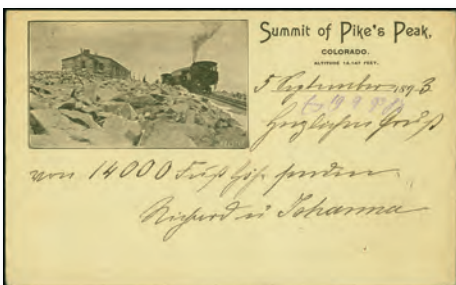 Summit of Pike's Peak,
COLORADO.
ALTITUDE 14,147 FEET.
5 September 1893
Herzlichen Gruß
von 14000 Fuß Höhe senden
Richard u Johanna